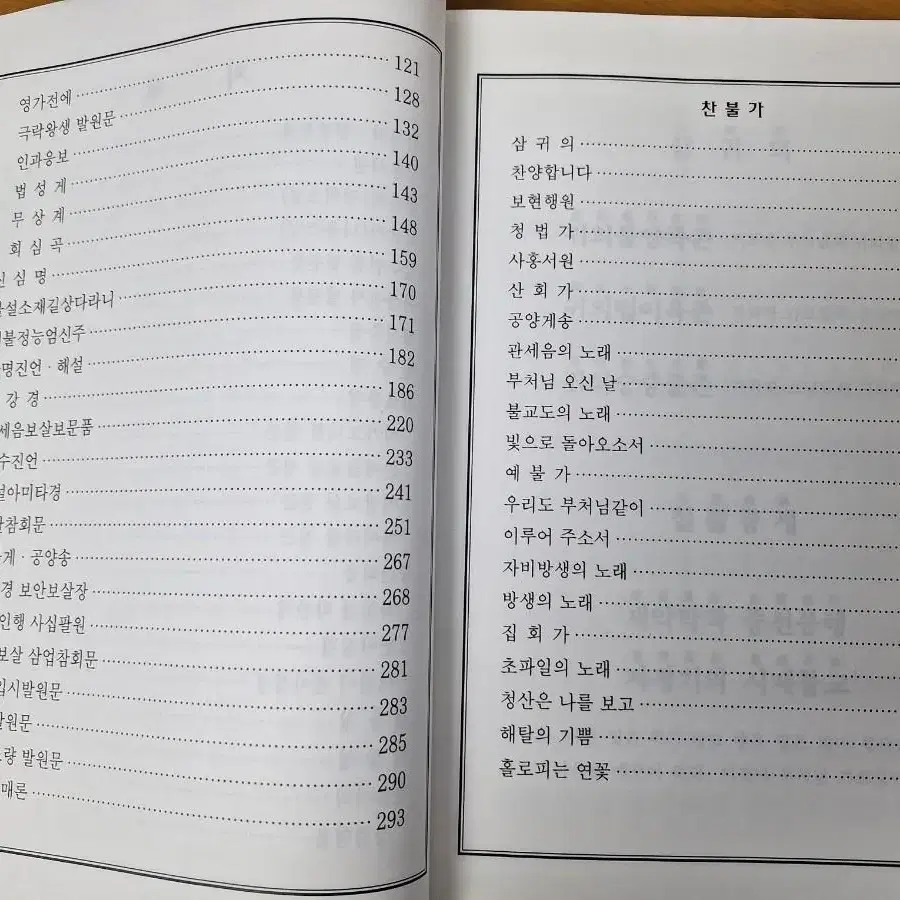 영가전에 121
극락왕생 발원문 128
인과응보 132
법 성 게 140
무 상 계 143
회 심 곡 148
신 심 명 159
불설소재길상다라니 170
불정능엄신주 171
명진언 · 해설 182
강 경 186
세음보살보문품 220
수진언 233
설아미타경 241
참회문 251
게 · 공양송 267
경 보안보살장 268
인행 사십팔원 277
보살 삼업참회문 281
입시발원문 283
발원문 285
량 발원문 290
매론 293
찬 불 가
삼 귀 의
찬양합니다
보현행원
청 법 가
사홍서원
산 회 가
공양게송
관세음의 노래
부처님 오신 날
불교도의 노래
빛으로 돌아오소서
예 불 가
우리도 부처님같이
이루어 주소서
자비방생의 노래
방생의 노래
집 회 가
초파일의 노래
청산은 나를 보고
해탈의 기쁨
홀로피는 연꽃